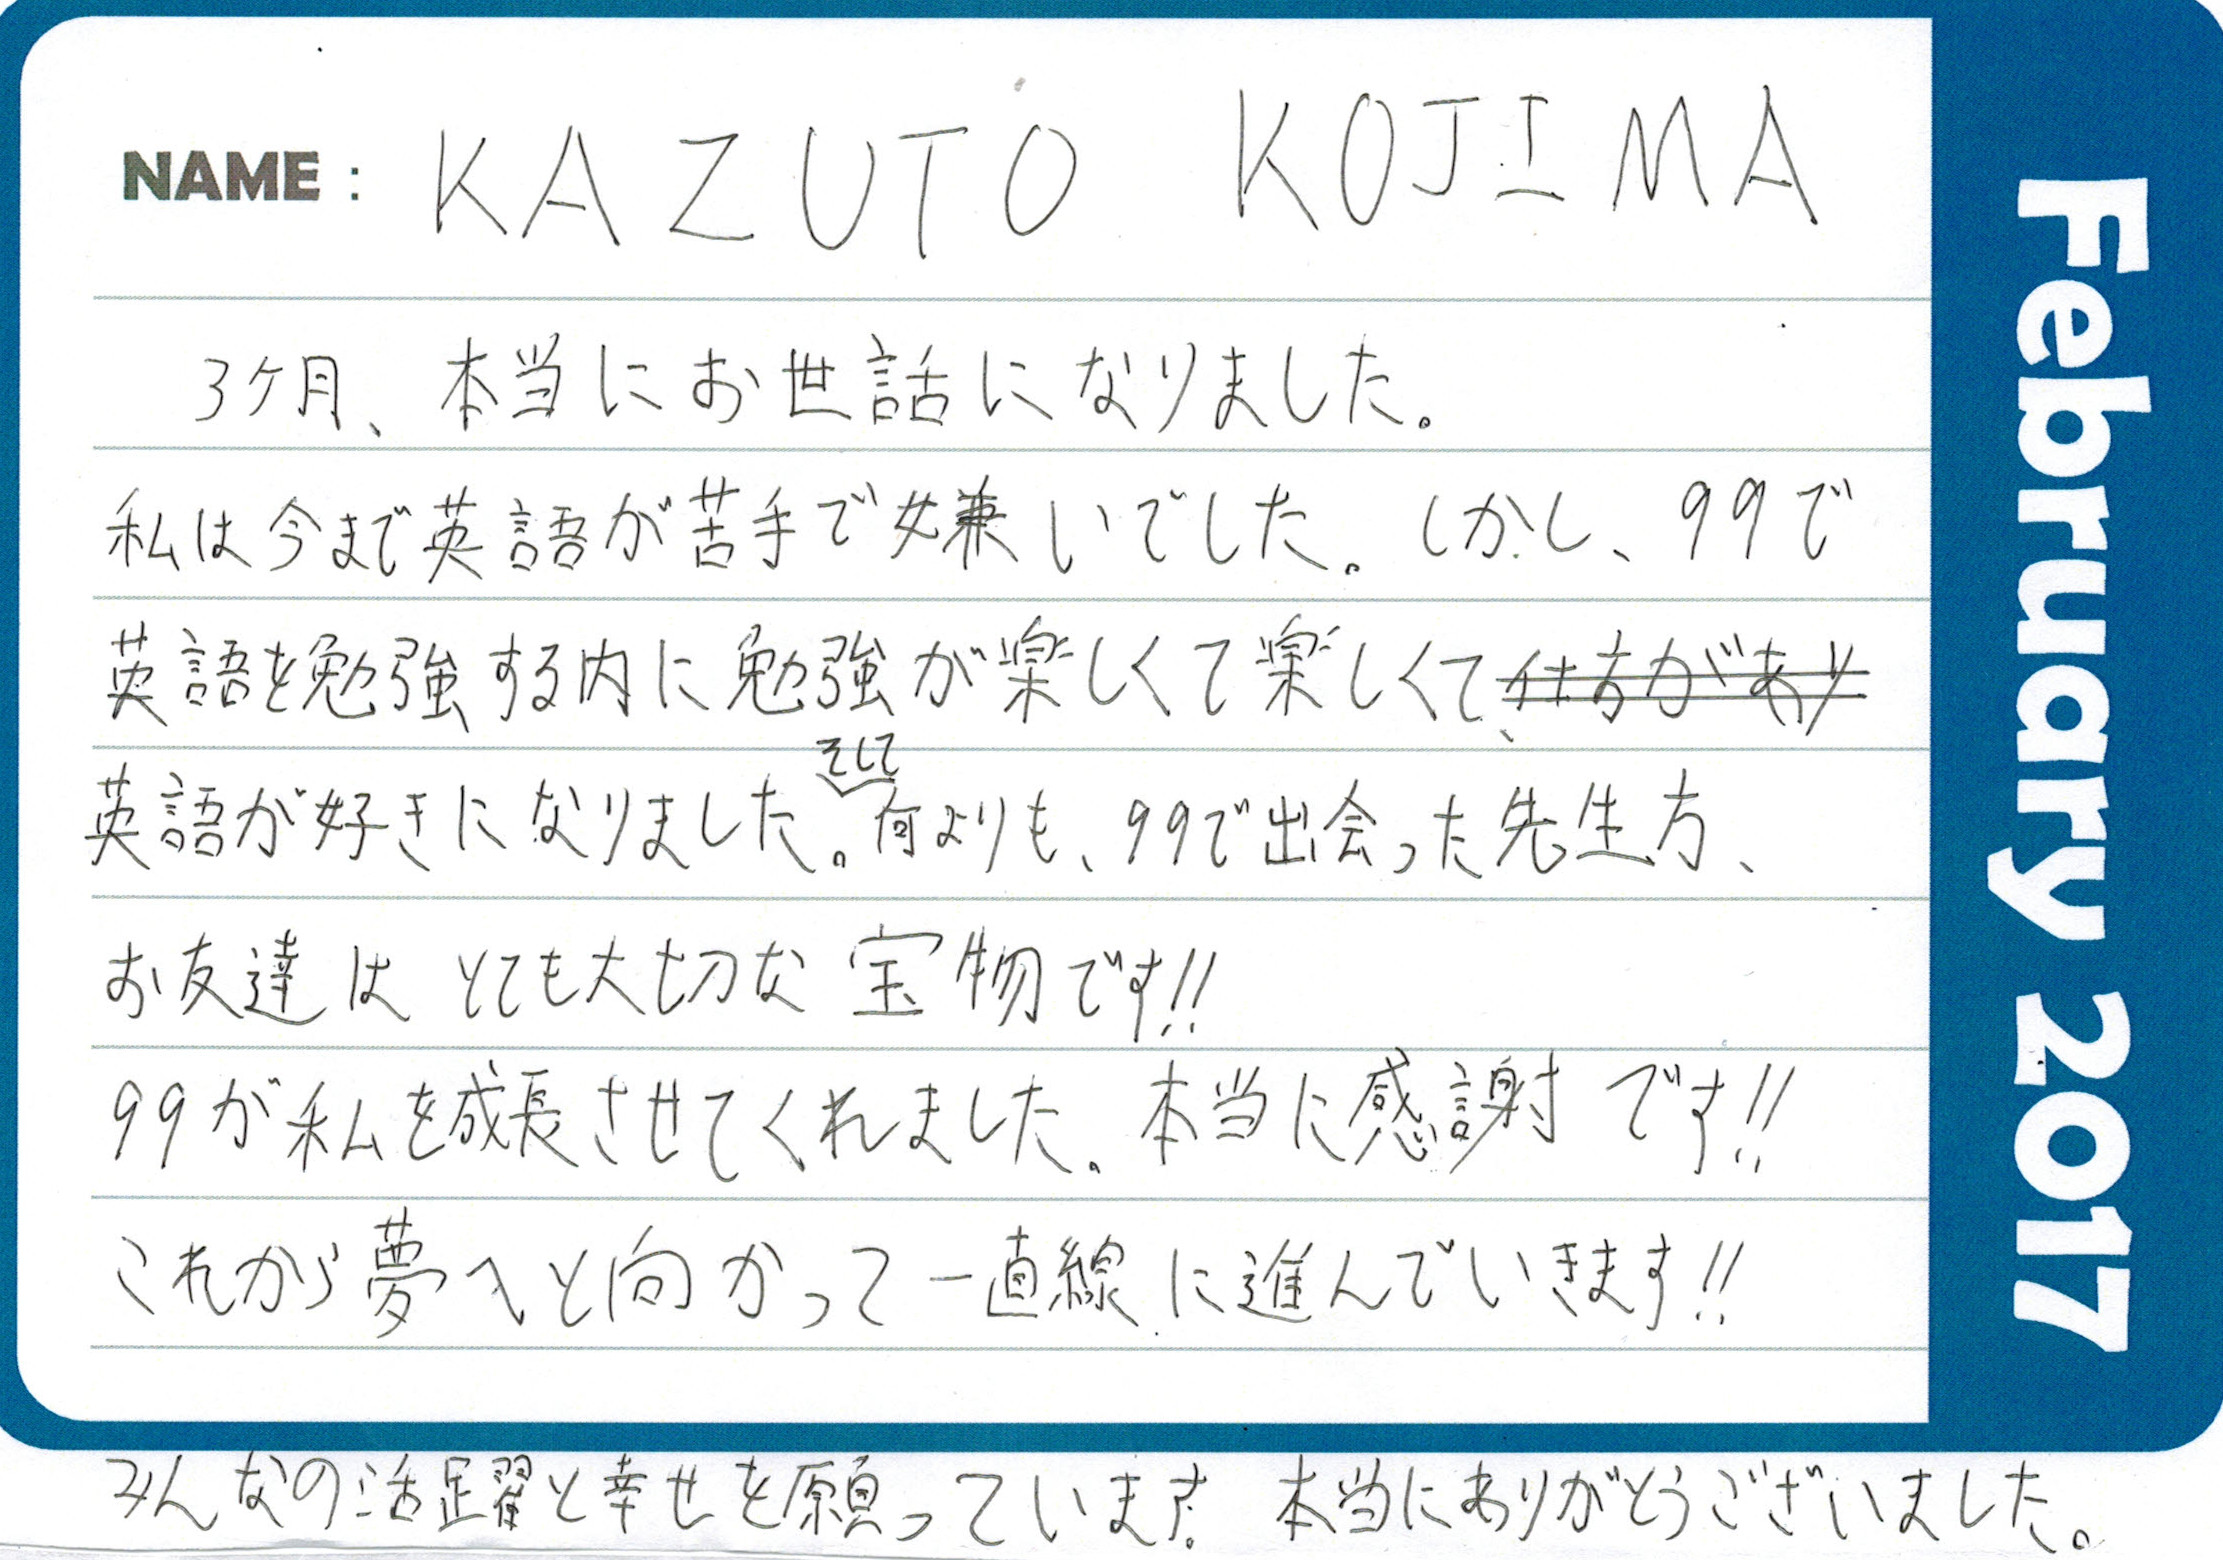 NAME : KAZUTO KOJIMA
3ケ月、本当にお世話になりました。
私は今まで英語が苦手で嫌いでした。しかし、99で
英語を勉強する内に勉強が楽しくて楽しくて、仕方があり
英語が好きになりました。そして何よりも、99で出会った先生方、
お友達はとても大切な宝物です!!
99が私を成長させてくれました。本当に感謝です!!
これから夢へと向かって一直線に進んでいきます!!
みんなの活躍と幸せを願っています。本当にありがとうございました。
February 2017